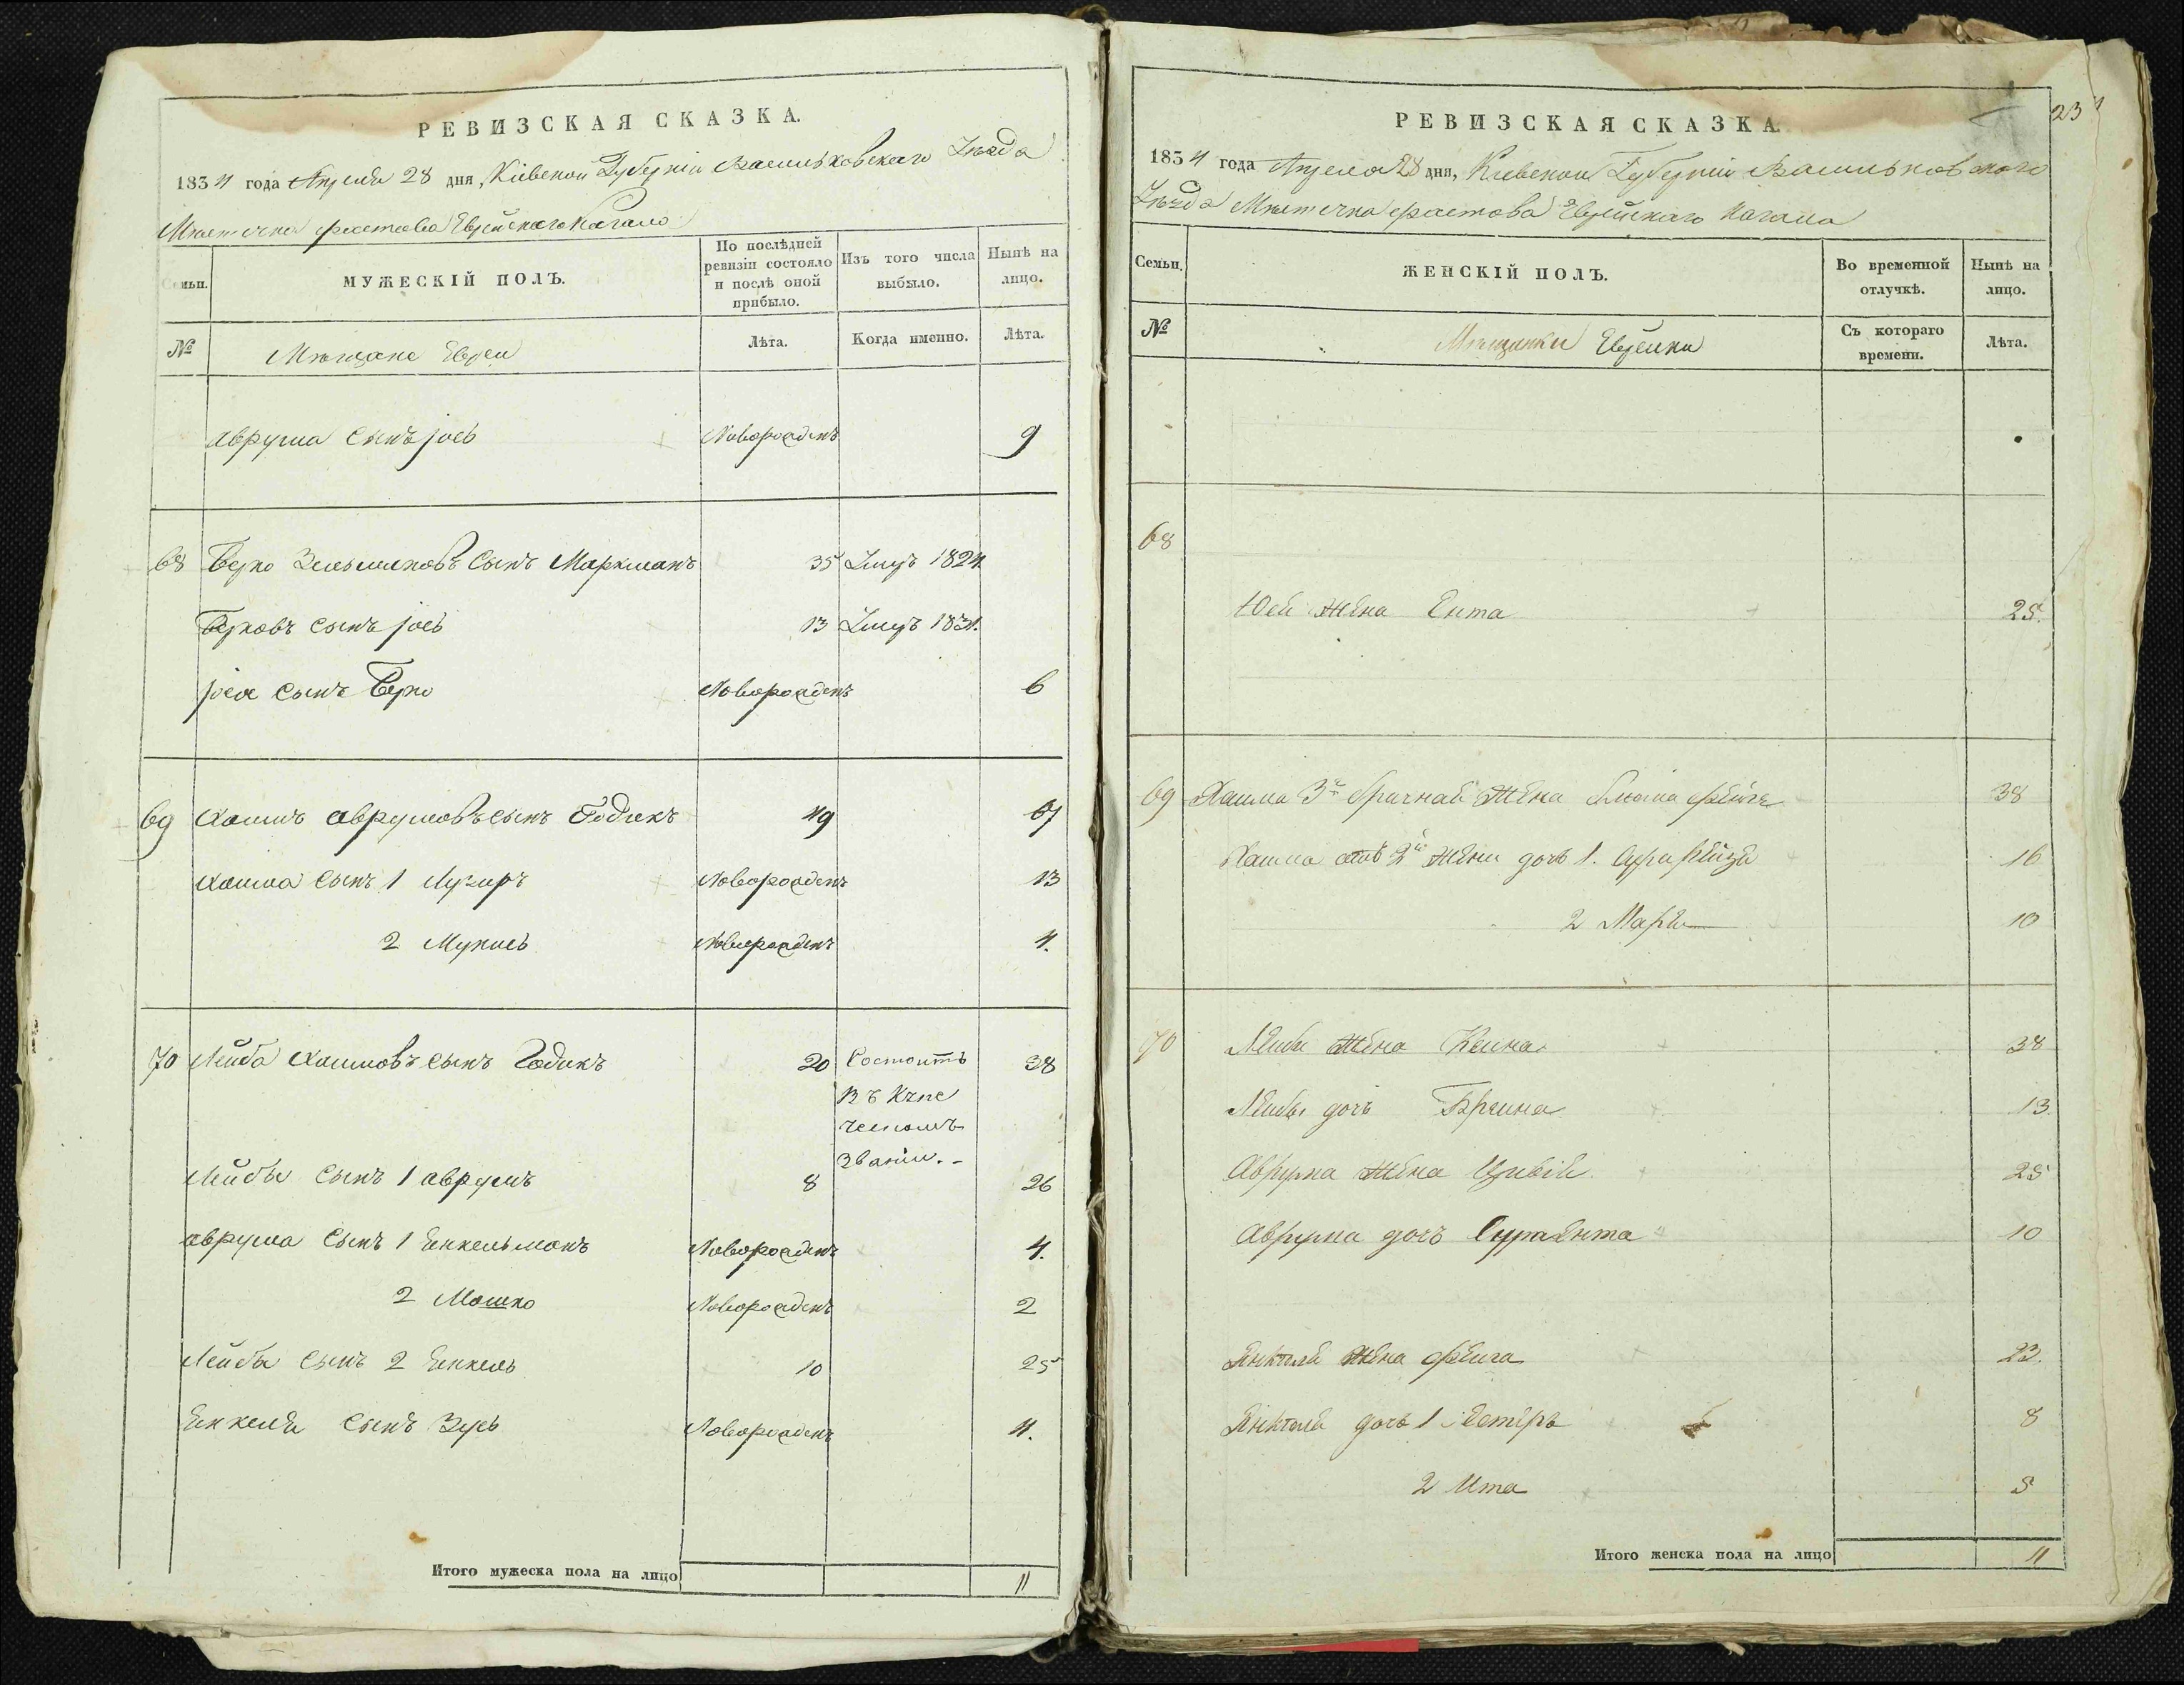 РЕВИЗСКАЯ СКАЗКА.
1834 года Апреля 28 дня, Кіевской Губерніи Васильковскаго Уѣзда
Мѣстечка Фастова Еврейскаго Кагала
Семьи.
МУЖЕСКІЙ ПОЛЪ.
По послѣдней ревизіи состояло и послѣ оной прибыло.
Изъ того числа выбыло.
Нынѣ на лицо.
№
Мѣщане Евреи
Лѣта.
Когда именно.
Лѣта.
аврума сынъ јось Новорожденъ 9
68 Берко Зельмановъ сынъ Маркманъ 35 Умеръ 1824.
Берковъ сынъ јось 13 Умеръ 1831.
јося сынъ Берко Новорожденъ 6
69 Хаимъ аврумовъ сынъ Годикъ 49 67
Хаима сынъ 1 Лузиръ Новорожденъ 13
2 Мунись Новорожденъ 4.
70 Лейба Хаимовъ сынъ Годикъ 20 Состоитъ 38
Въ Купе
ческомъ
званіи.
Лейбы сынъ 1 аврумъ 8 26
аврума сынъ 1 Енкельманъ Новорожденъ 4.
2 Мошко Новорожденъ 2
Лейбы сынъ 2 Енкель 10 25
Енкеля сынъ Зусь Новорожденъ 4.
Итого мужеска пола на лицо 11
23
РЕВИЗСКАЯ СКАЗКА.
1834 года Апреля 28 дня, Кіевской Губерніи Васильковскаго
Уѣзда Мѣстечка Фастова Еврейскаго Кагала
Семьи.
ЖЕНСКІЙ ПОЛЪ.
Во временной отлучкѣ.
Нынѣ на лицо.
№
Мѣщанки Еврейки
Съ котораго времени.
Лѣта.
68
Юси Жена Ента 25.
69 Хаима 3й брачнай Жена Блюма Фейга 38
Хаима отъ 2й Жени дочь 1. Сура Рейзя 16
2 Маря 10
70 Лейбы Жена Кейна 38
Лейбы дочь Брейна 13
Аврума Жена Цивія 25
Аврума дочь Сура Ента 10
Янкеля Жена Фейга 23.
Янкеля дочь 1 Естеръ 8
2 Ита 5
Итого женска пола на лицо 11